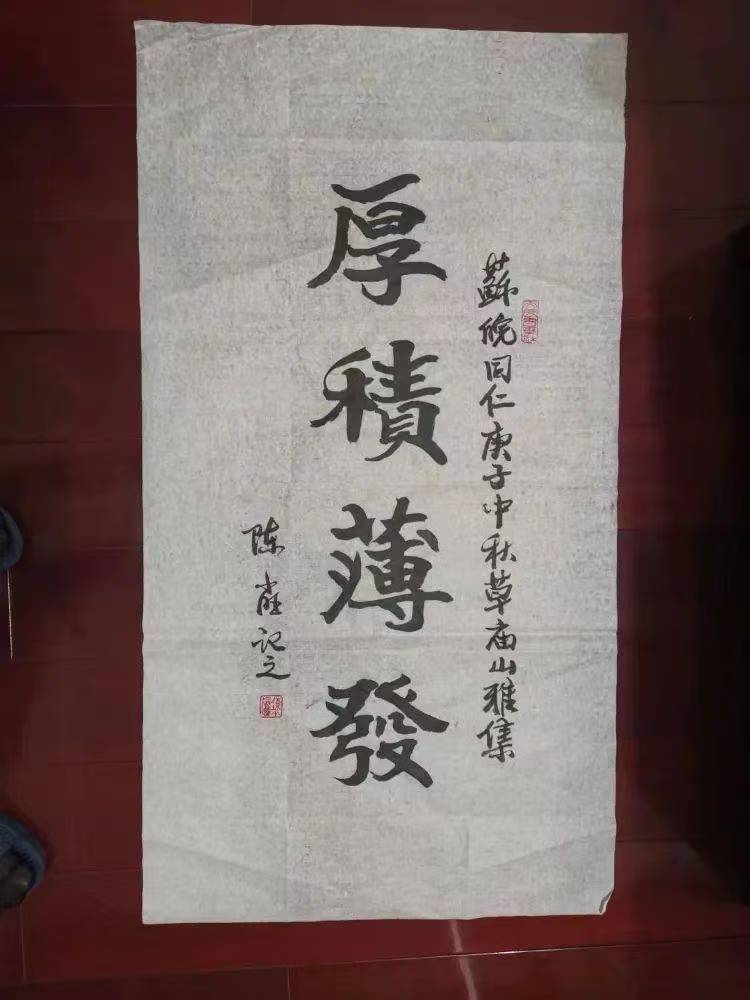 蘇皖同仁庚子中秋草庙山雅集
厚積薄發
陈 記之